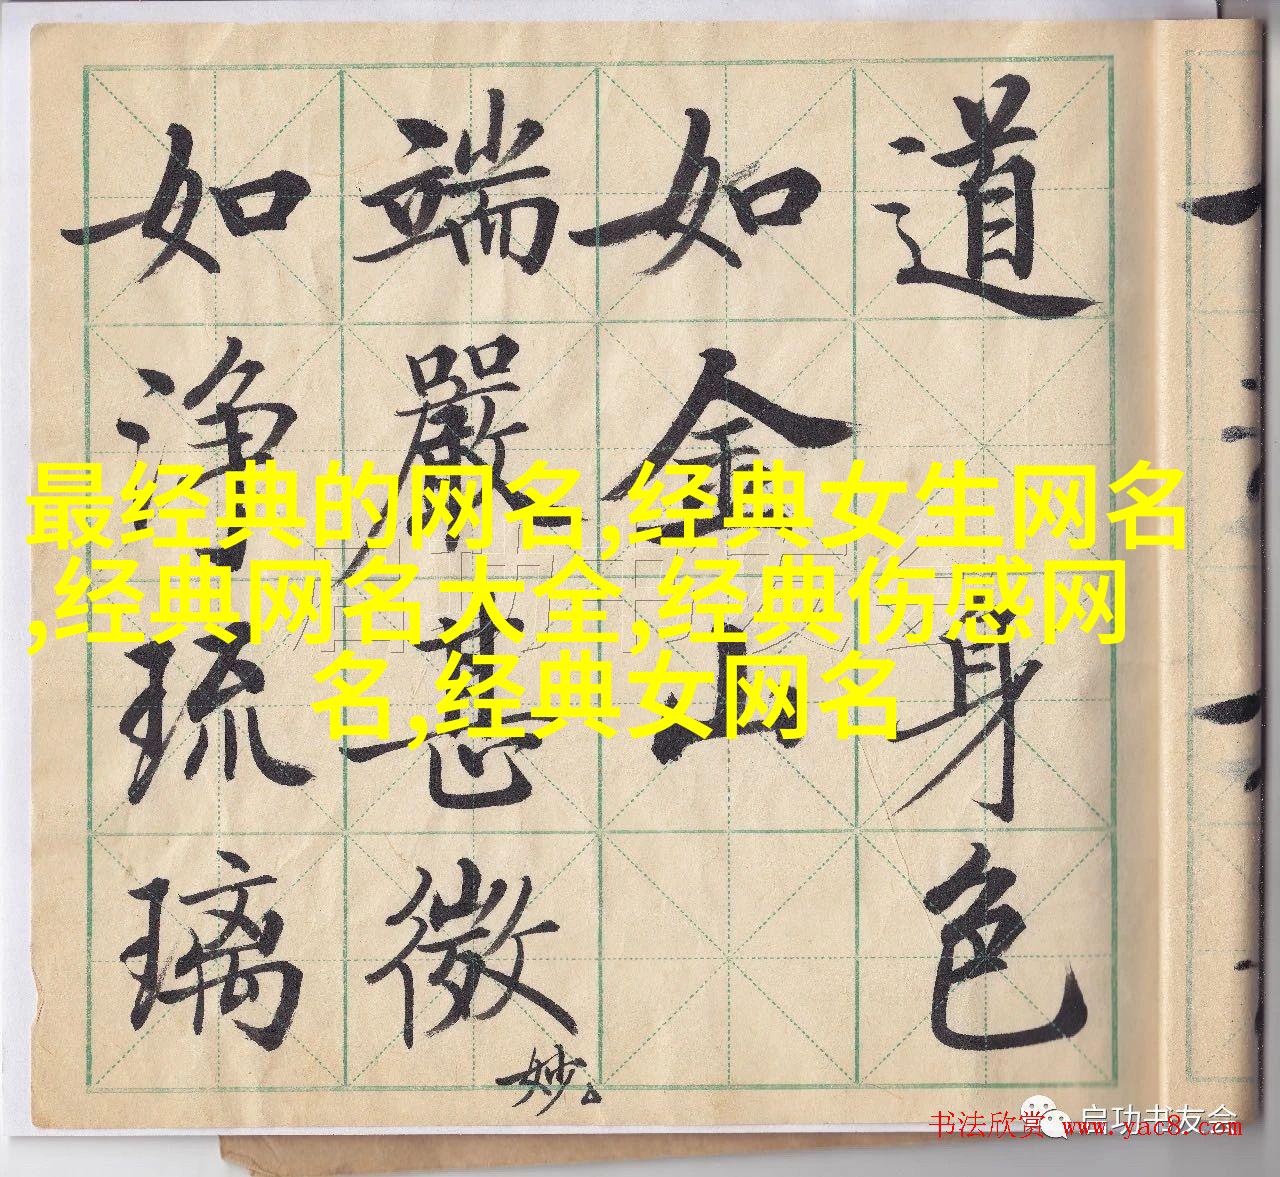 道身色
如金山
端嚴甚微妙
如淨琉璃
最经典的网名,经典女生网名
,经典网名大全,经典伤感网
名,经典女网名
启功书友会
书法欣赏 www.yac8.com